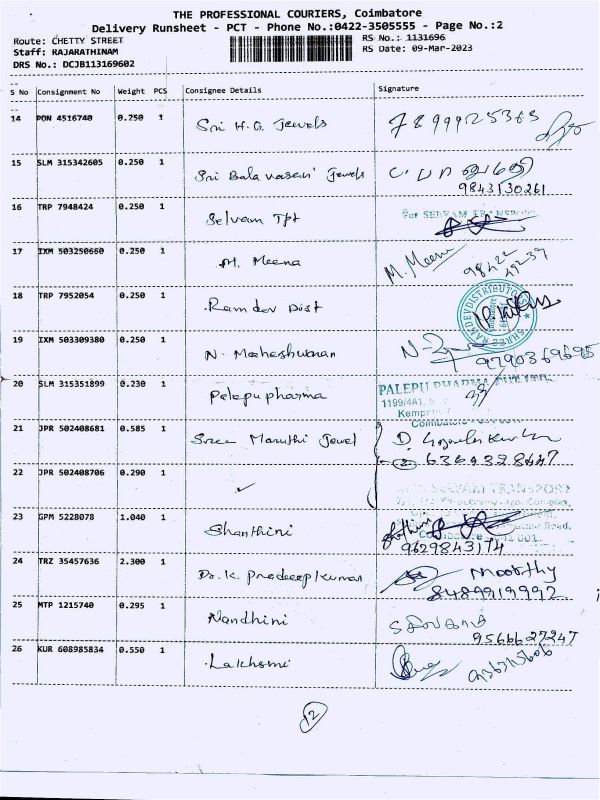 THE PROFESSIONAL COURIERS, Coimbatore
Delivery Runsheet - PCT - Phone No.:0422-3505555 - Page No.:2
Route: CHETTY STREET RS No.: 1131696
Staff: RAJARATHINAM RS Date: 09-Mar-2023
DRS No.: DCJB113169602
S No Consignment No Weight PCS Consignee Details Signature
14 PDN 4516740 0.250 1 Sri H.G. Jewels 7899925363
15 SLM 315342605 0.250 1 Sri Bala vasan Jewels
9843130261
16 TRP 7948424 0.250 1 Selvam Tpt For SELVAM TRANSPORT
17 IXM 503250660 0.250 1 M. Meena M. Meena
18 TRP 7952054 0.250 1 Ramdev Dist SHREE RAMDEV DISTRIBUTORS
19 IXM 503309380 0.250 1 N. Maheshwaran
9290369695
20 SLM 315351899 0.230 1 Palepu pharma PALEPU PHARMA PVT LTD.
1199/4A1,
Coimbatore
21 JPR 502408681 0.585 1 Sree Maruthi Jewel
22 JPR 502408706 0.290 1 ✓ TRANSPORT
23 GPM 5228078 1.040 1 Shanthini
9629843174
24 TRZ 35457636 2.300 1 Dr. K. Pradeep Kumar Moorthy
8489919992
25 MTP 1215740 0.295 1 Nandhini
9566627247
26 KUR 608985834 0.550 1 Lakshmi
12